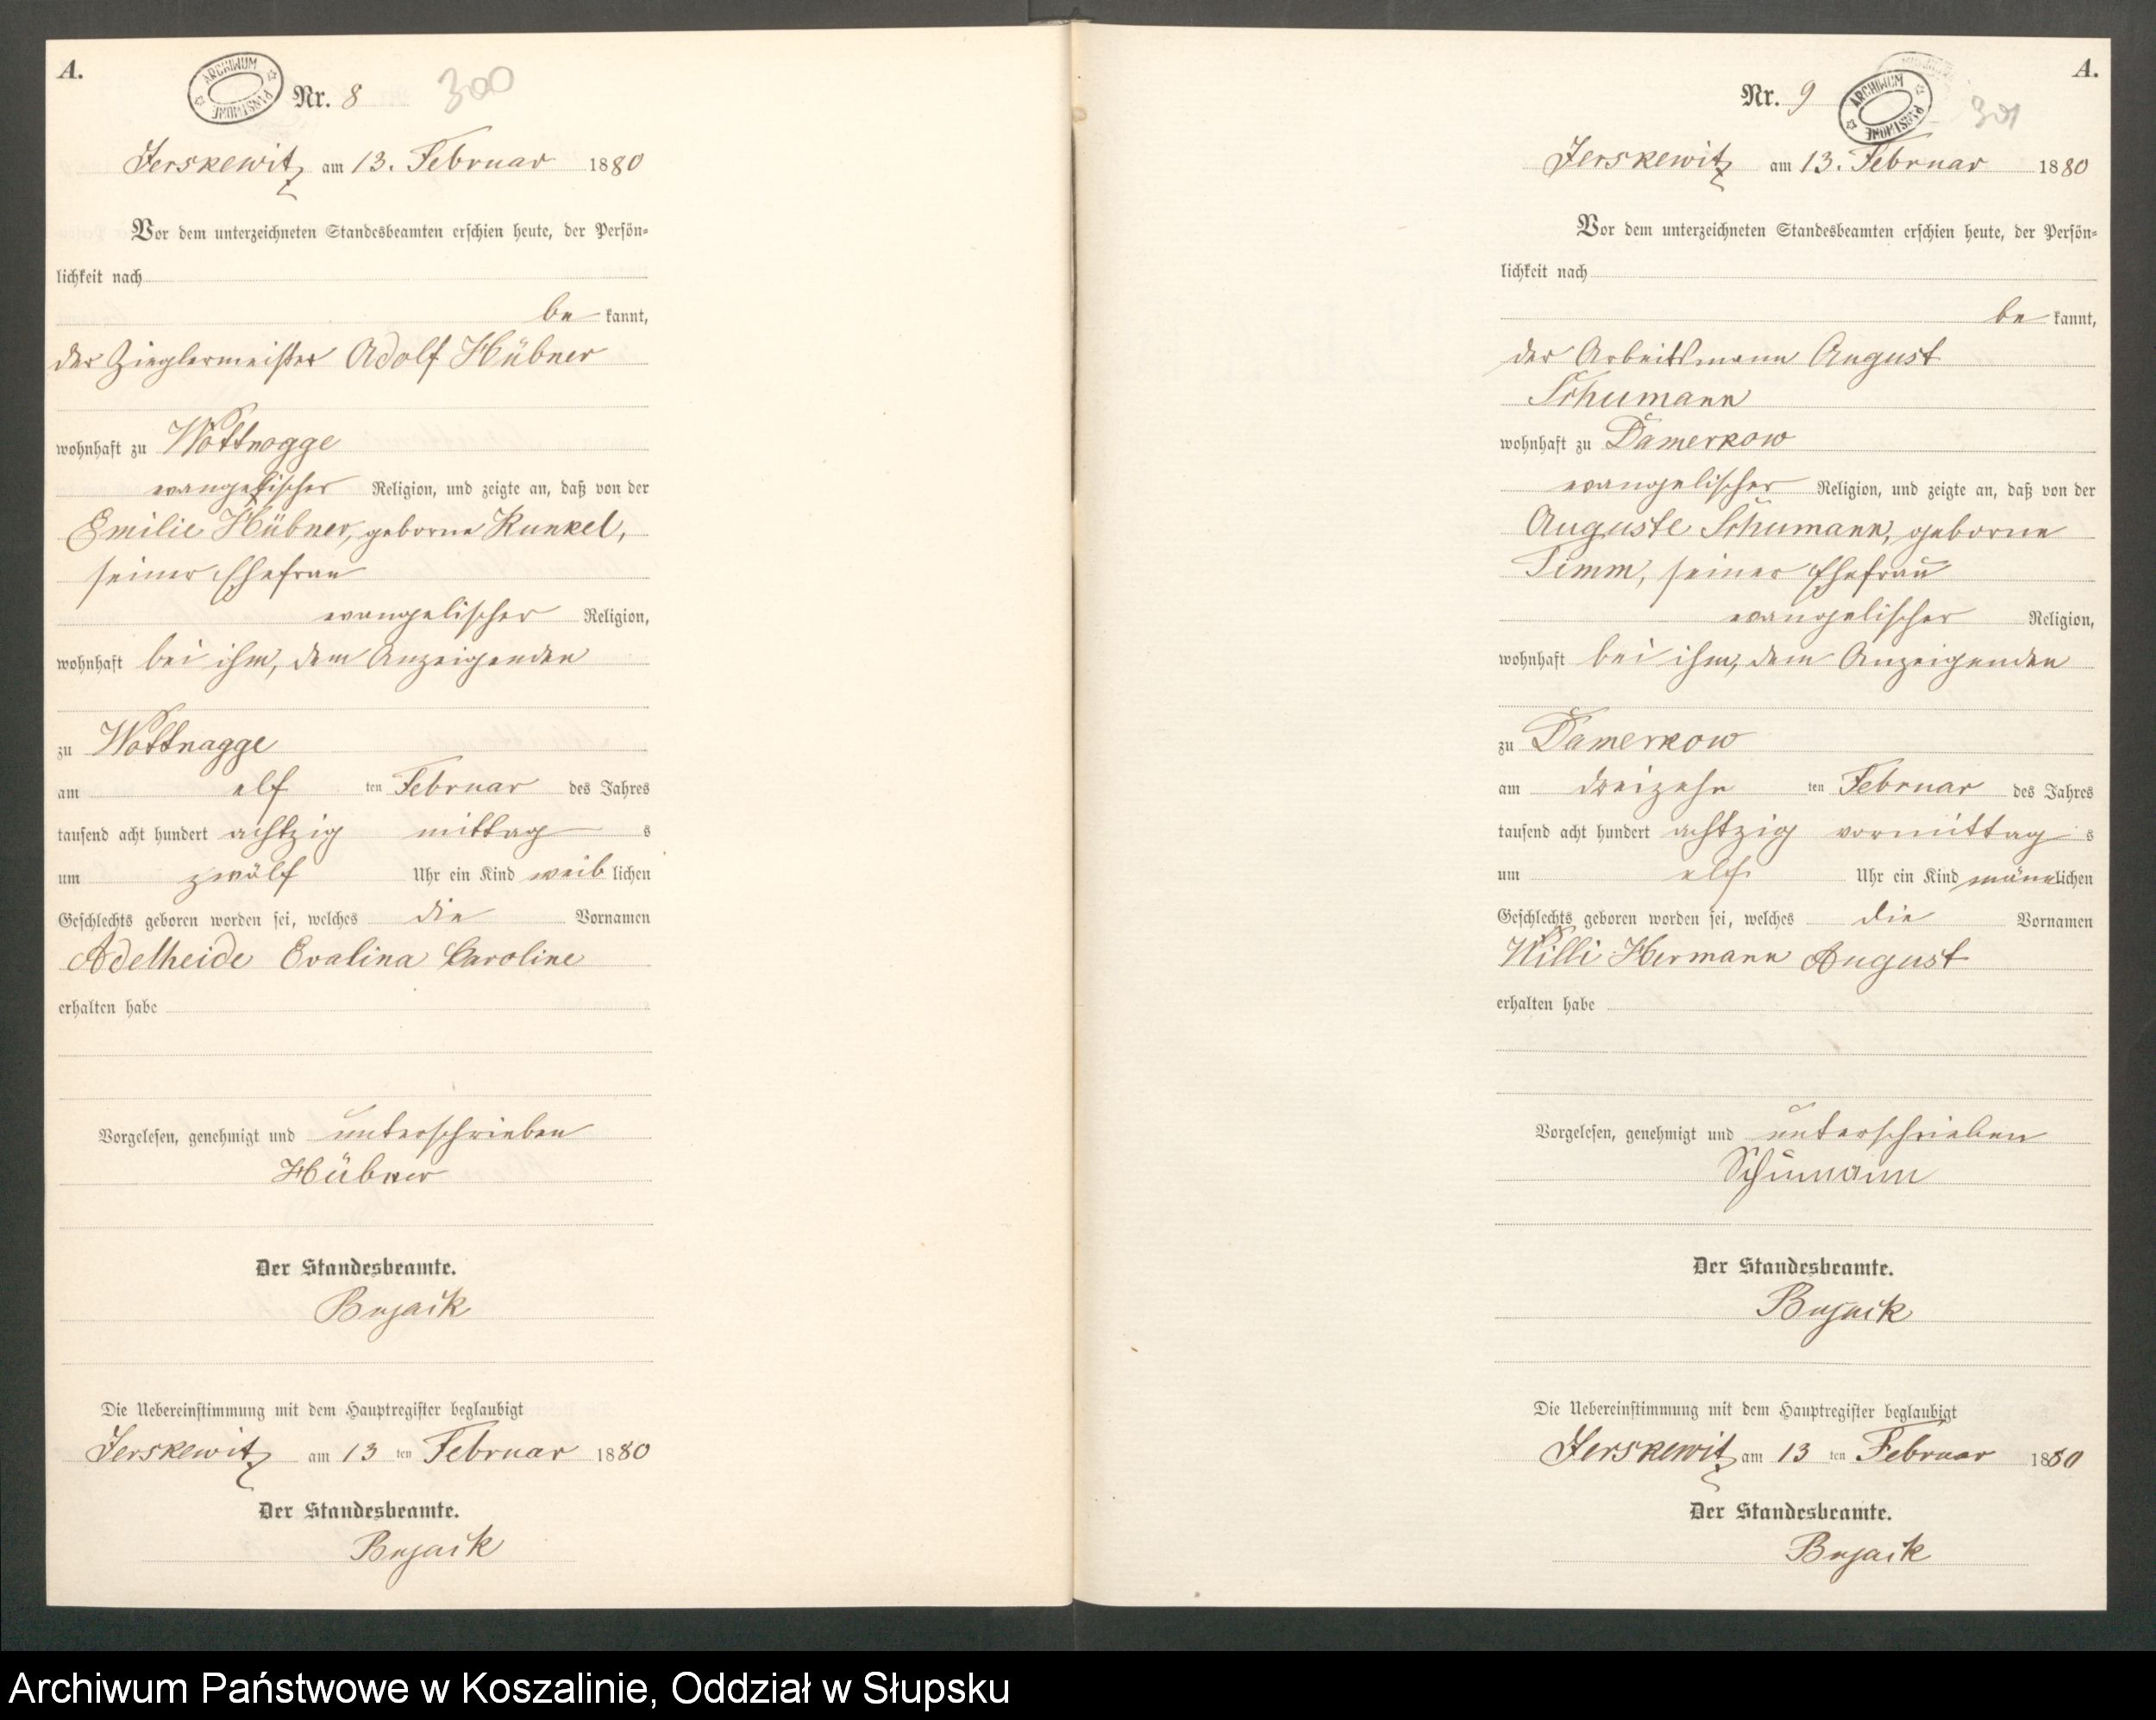 A.
ARCHIWUM PAŃSTWOWE
Nr. 8
300
Jerskewitz am 13. Februar 1880
Vor dem unterzeichneten Standesbeamten erschien heute, der Persön-
lichkeit nach
be kannt,
der Zieglermeister Adolf Hübner
wohnhaft zu Wottnogge
evangelischer Religion, und zeigte an, daß von der
Emilie Hübner, geborne Kunkel,
seiner Ehefrau
evangelischer Religion,
wohnhaft bei ihm, dem Anzeigenden
zu Wottnagge
am elf ten Februar des Jahres
tausend acht hundert achtzig mittag s
um zwölf Uhr ein Kind weib lichen
Geschlechts geboren worden sei, welches die Vornamen
Adelheide Evalina Caroline
erhalten habe
Vorgelesen, genehmigt und unterschrieben
Hübner
Der Standesbeamte.
Bujack
Die Uebereinstimmung mit dem Hauptregister beglaubigt
Jerskewitz am 13 ten Februar 1880
Der Standesbeamte.
Bujack
A.
Nr. 9
ARCHIWUM PAŃSTWOWE
301
Jerskewitz am 13. Februar 1880
Vor dem unterzeichneten Standesbeamten erschien heute, der Persön-
lichkeit nach
be kannt,
der Arbeitsmann August
Schumann
wohnhaft zu Damerkow
evangelischer Religion, und zeigte an, daß von der
Auguste Schumann, geborne
Timm, seiner Ehefrau
evangelischer Religion,
wohnhaft bei ihm, dem Anzeigenden
zu Damerkow
am dreizehn ten Februar des Jahres
tausend acht hundert achtzig vormittag s
um elf Uhr ein Kind männlichen
Geschlechts geboren worden sei, welches die Vornamen
Willi Hermann August
erhalten habe
Vorgelesen, genehmigt und unterschrieben
Schumann
Der Standesbeamte.
Bujack
Die Uebereinstimmung mit dem Hauptregister beglaubigt
Jerskewitz am 13 ten Februar 1880
Der Standesbeamte.
Bujack
Archiwum Państwowe w Koszalinie, Oddział w Słupsku